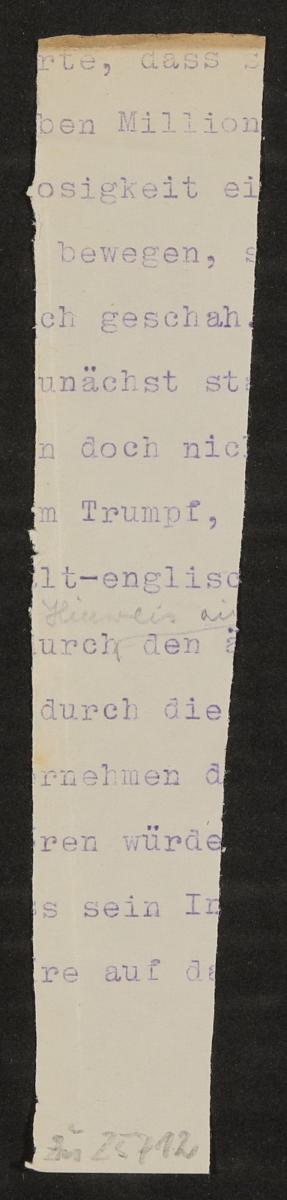 rte, dass s
ben Million
osigkeit ei
bewegen, s
ch geschah.
unächst sta
n doch nich
m Trumpf,
lt-englisc
Hinweis
urch den ä
durch die
rnehmen d
ren würde
s sein In
re auf da
zu 25712